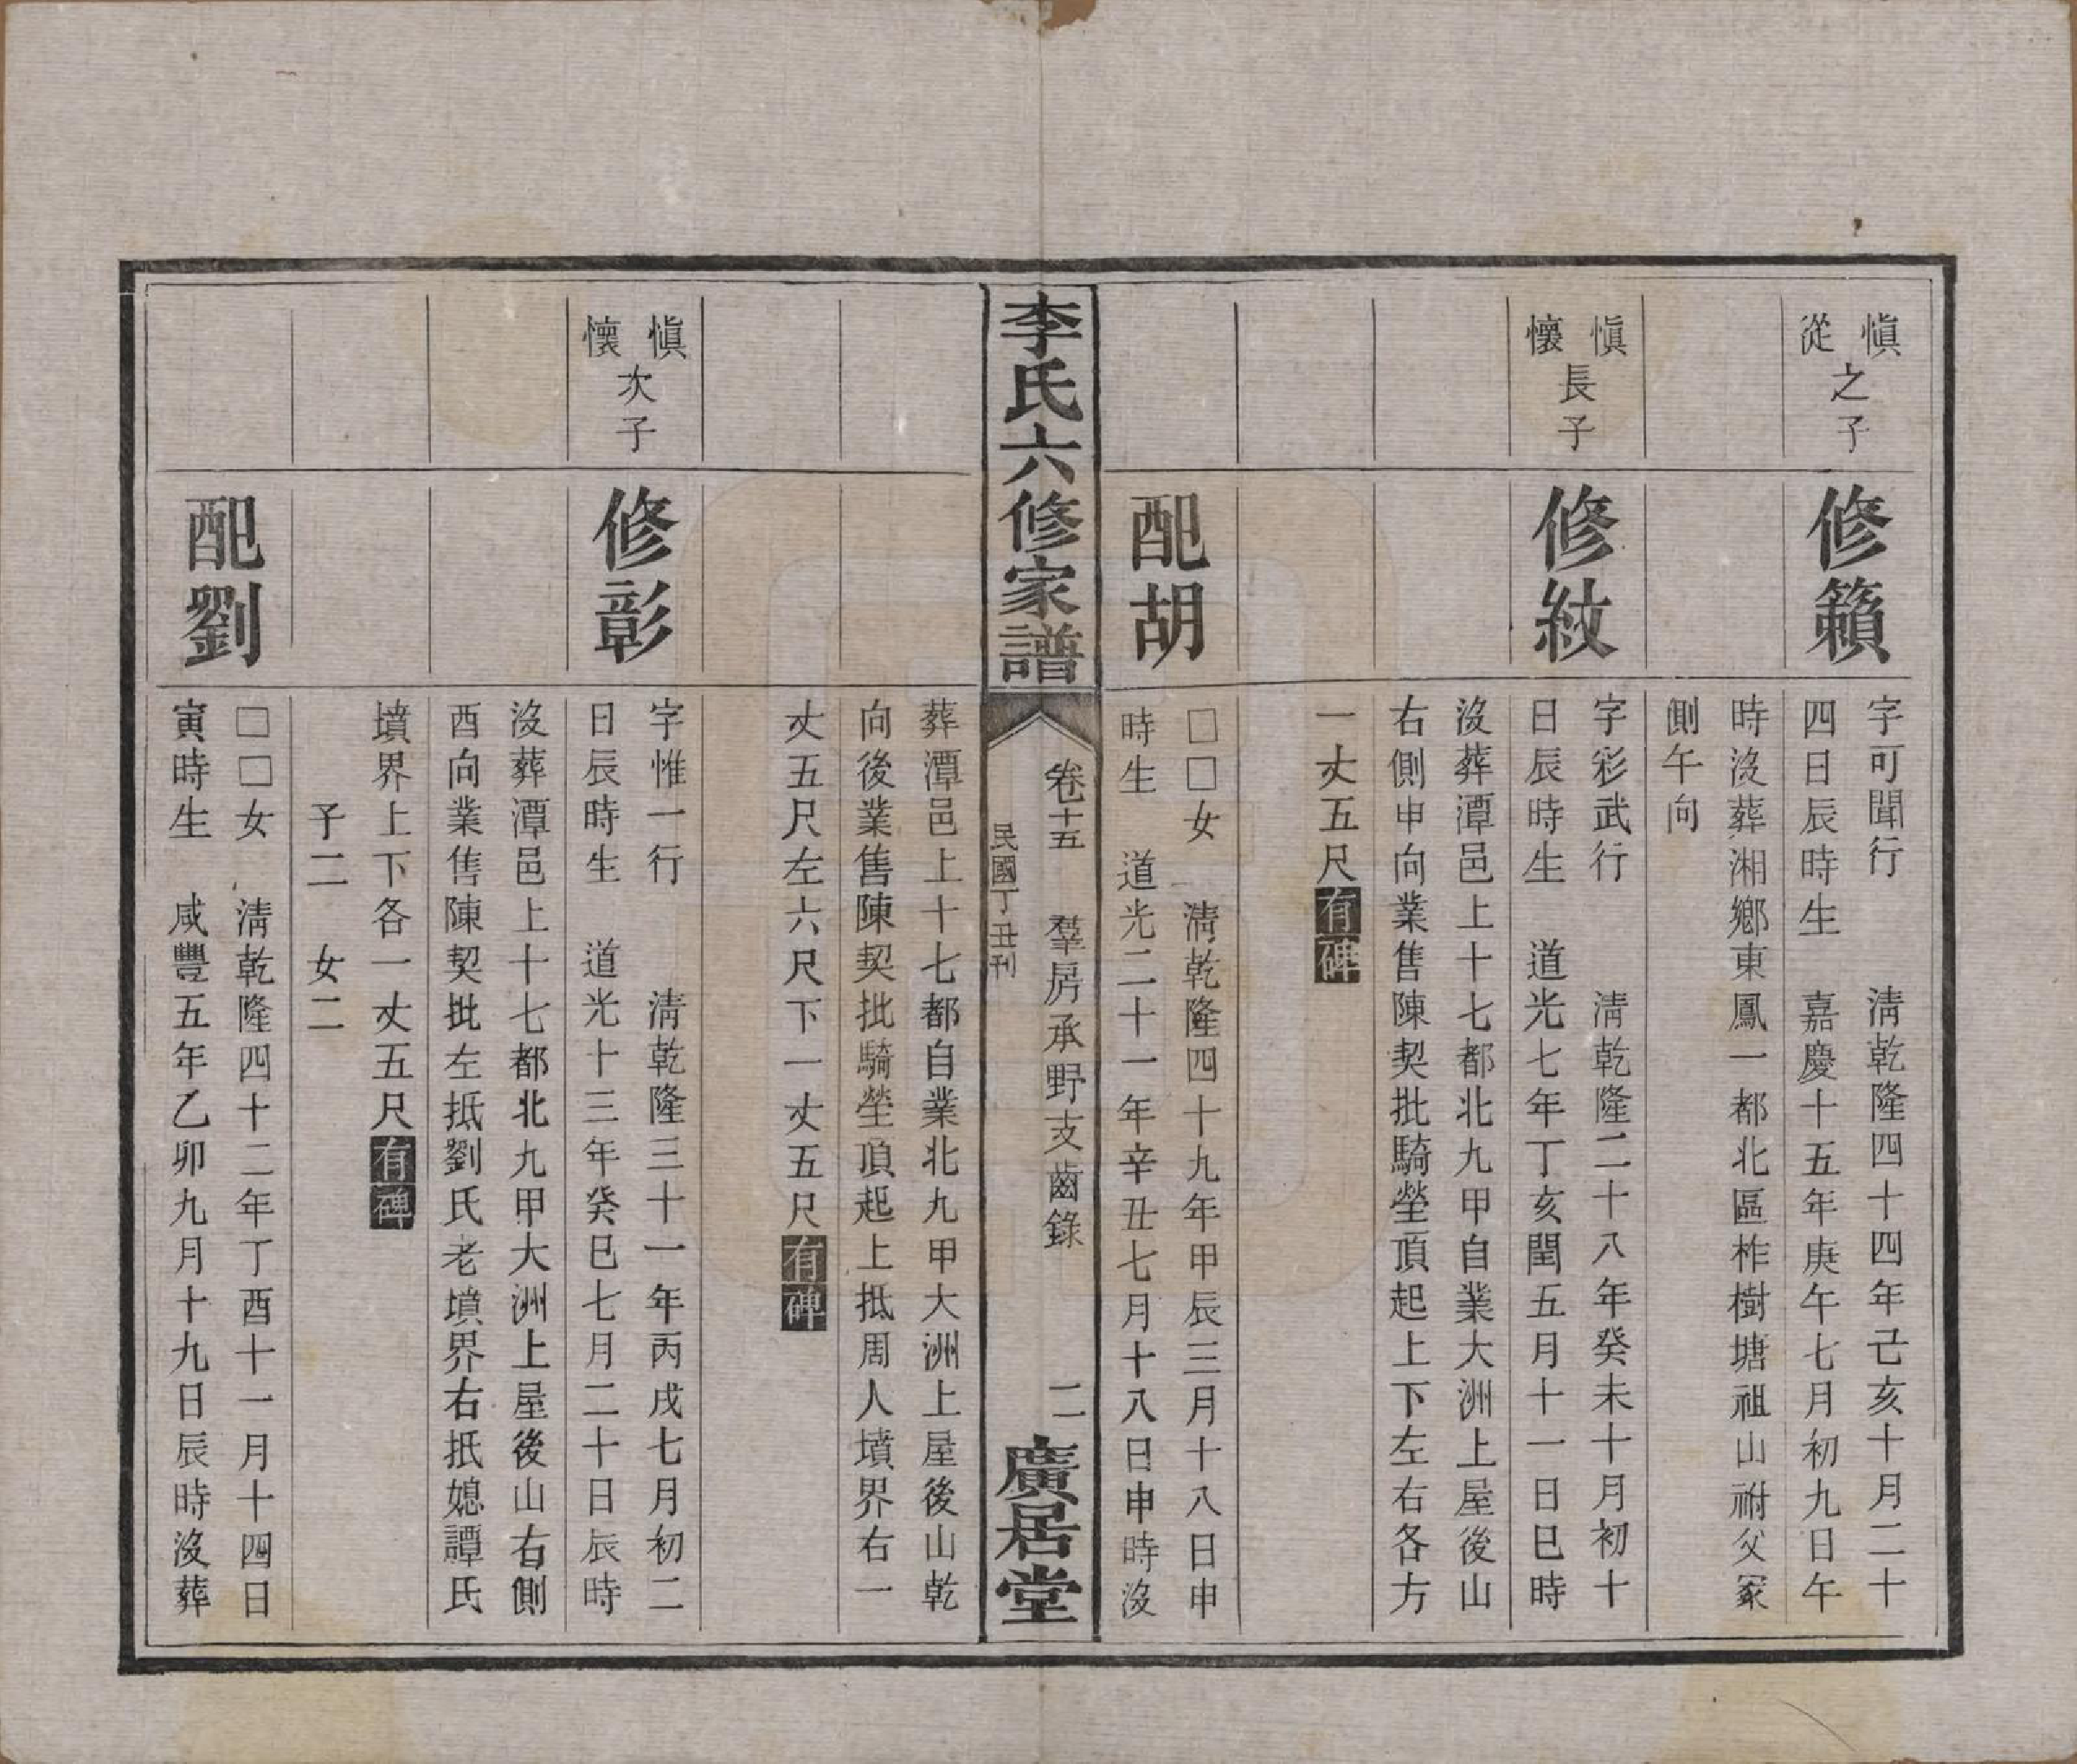 愼從之子
修籟
字可聞行　清乾隆四十四年己亥十月二十
四日辰時生　嘉慶十五年庚午七月初九日午
時沒葬湘鄉東鳳一都北區柞樹塘祖山祔父冢
側午向
愼懷長子
修紋
字彩武行　清乾隆二十八年癸未十月初十
日辰時生　道光七年丁亥閏五月十一日巳時
沒葬潭邑上十七都北九甲自業大洲上屋後山
右側申向業售陳契批騎塋頂起上下左右各方
一丈五尺有碑
配胡
□□女　清乾隆四十九年甲辰三月十八日申
時生　道光二十一年辛丑七月十八日申時沒
李氏六修家譜
卷十五　羣房承野支齒錄　二
民國丁丑刊
廣居堂
葬潭邑上十七都自業北九甲大洲上屋後山乾
向後業售陳契批騎塋頂起上抵周人墳界右一
丈五尺左六尺下一丈五尺有碑
愼懷次子
修彰
字惟一行　清乾隆三十一年丙戌七月初二
日辰時生　道光十三年癸巳七月二十日辰時
沒葬潭邑上十七都北九甲大洲上屋後山右側
酉向業售陳契批左抵劉氏老墳界右抵媳譚氏
墳界上下各一丈五尺有碑
子二　女二
配劉
□□女　清乾隆四十二年丁酉十一月十四日
寅時生　咸豐五年乙卯九月十九日辰時沒葬